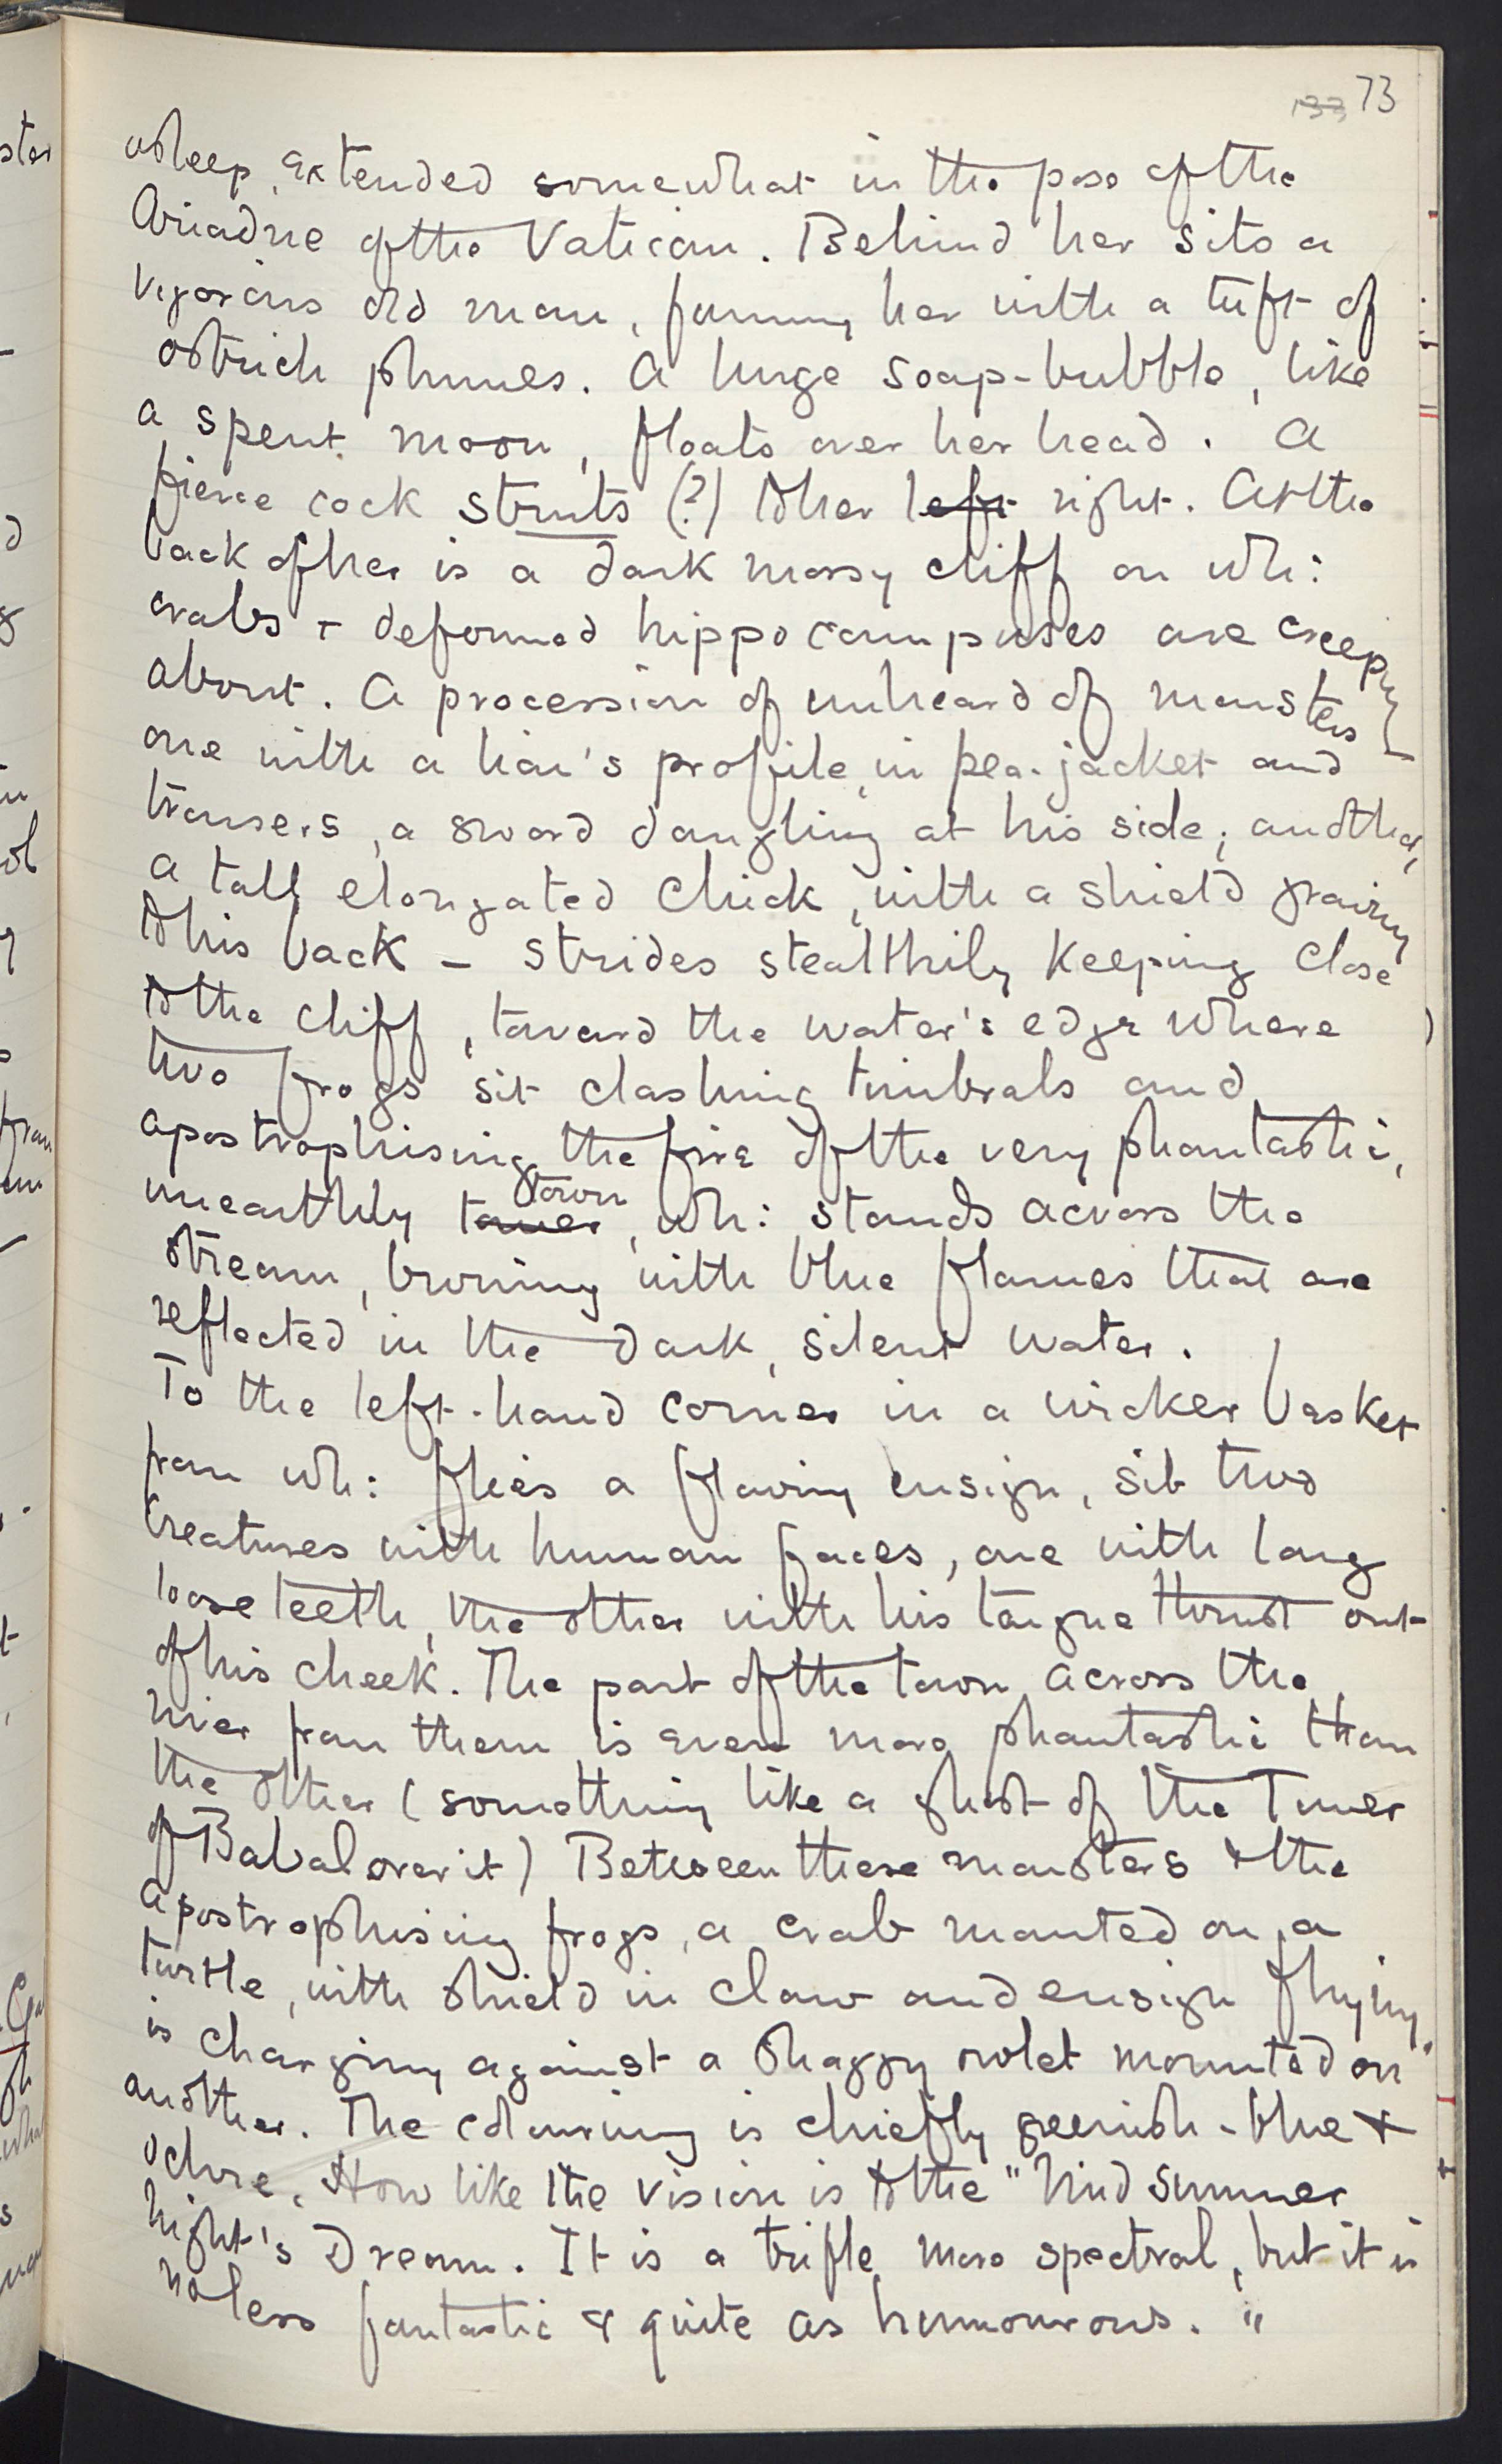 133 73
asleep, extended somewhat in the pose of the
Ariadne of the Vatican. Behind her sits a
vigorous old man, fanning her with a tuft of
ostrich plumes. A huge soap-bubble, like
a spent moon, floats over her head. A
fierce cock struts (?) to her left right. At the
back of her is a dark mossy cliff on wh:
crabs + deformed hippocampuses are creeping
about. A procession of unheard of monsters -
one with a lion's profile, in pea-jacket and
trousers, a sword dangling at his side; another,
a tall elongated chick, with a shield
to his back - strides stealthily keeping close
to the cliff, toward the water's edge where
two frogs sit clashing timbrals and
apostrophising the fire of the very phantastic,
unearthly tower town, wh: stands across the
stream, burning with blue flames that are
reflected in the dark, silent water.
To the left-hand corner in a wicker basket
from wh: flies a flaring ensign, sit two
creatures with human faces, one with long
loose teeth, the other with his tongue thrust out
of his cheek. The part of the town across the
river from them is even more phantastic than
the other (something like a ghost of the Tower
of Babal over it) Between these monsters & the
apostrophising frogs, a crab mounted on a
turtle, with shield in claw and ensign flying,
is charging against a shaggy owlet mounted on
another. The colouring is chiefly greenish-blue &
ochre. How like the vision is to the "Midsummer
Night's Dream. It is a trifle more spectral, but it is
no less fantastic & quite as humourous. "